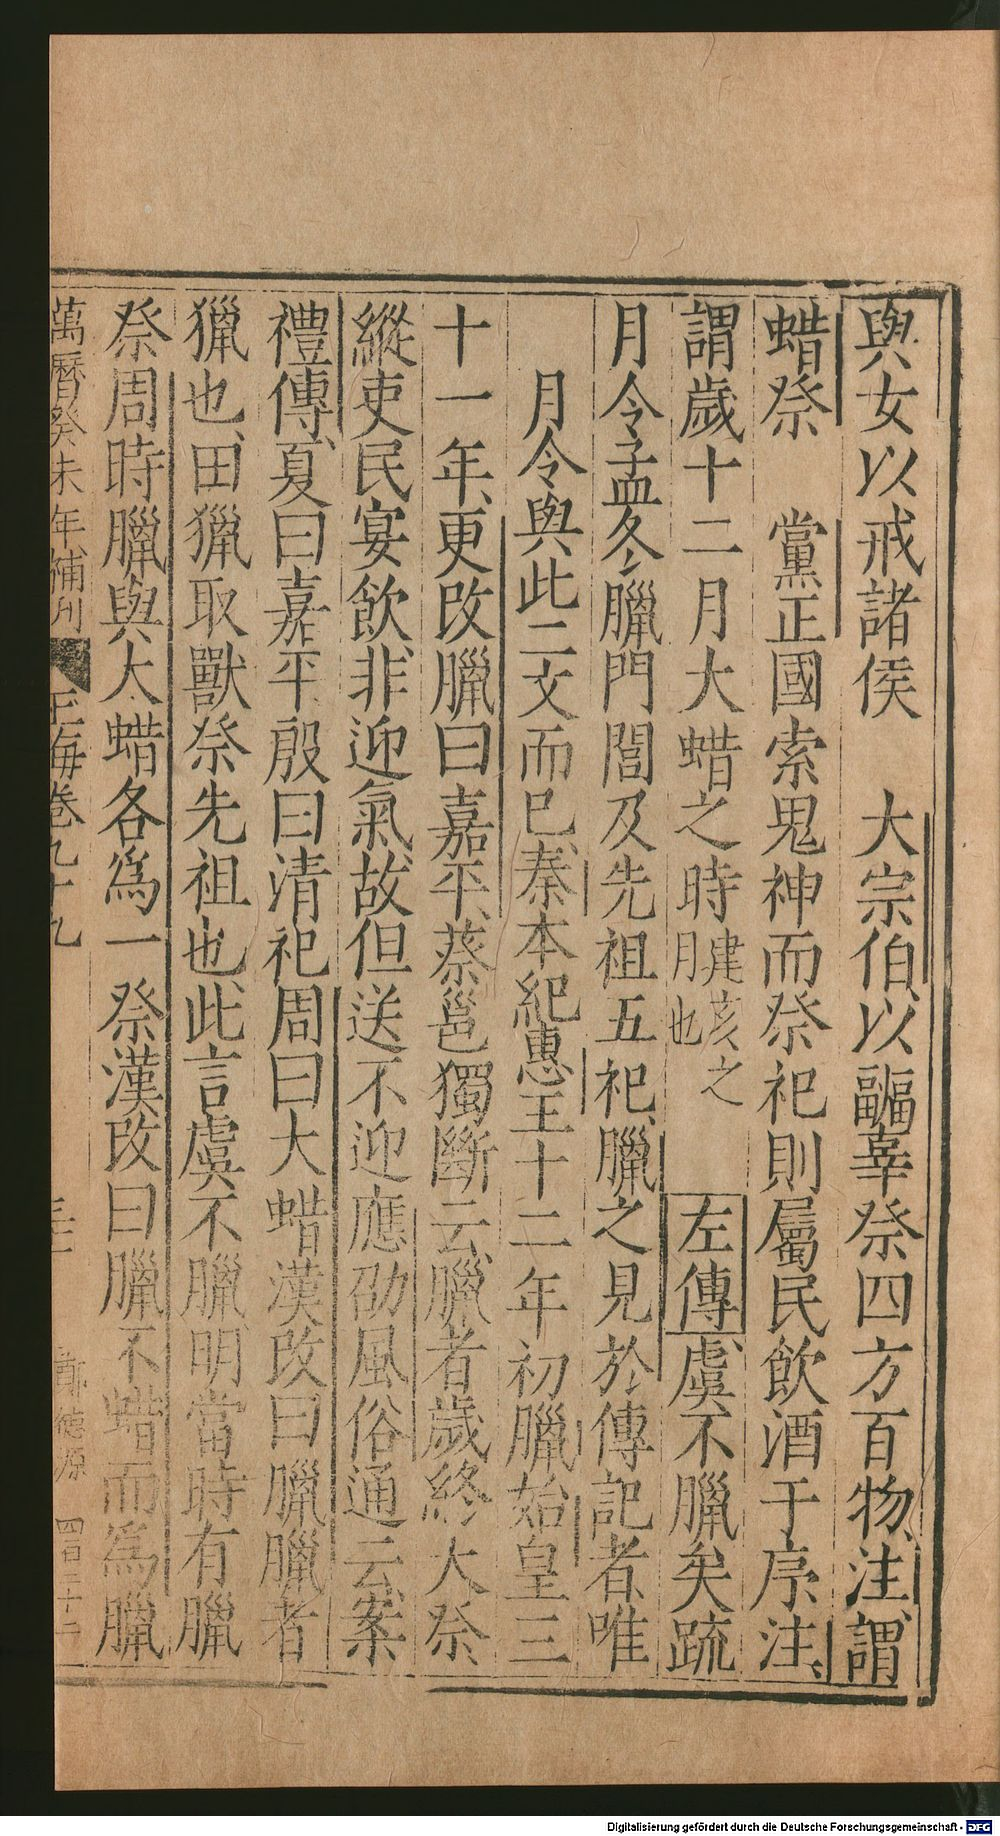 與女以戒諸侯　大宗伯以疈辜祭四方百物注謂
蜡祭　黨正國索鬼神而祭祀則屬民飲酒于序注
謂歲十二月大蜡之時建亥之月也　左傳虞不臘矣疏
月令孟冬臘門閭及先祖五祀臘之見於傳記者唯
月令與此二文而已秦本紀惠王十二年初臘始皇三
十一年更改臘曰嘉平蔡邕獨斷云臘者歲終大祭
縱吏民宴飲非迎氣故但送不迎應劭風俗通云案
禮傳夏曰嘉平殷曰清祀周曰大蜡漢改曰臘臘者
獵也田獵取獸祭先祖也此言虞不臘明當時有臘
祭周時臘與大蜡各為一祭漢改曰臘不蜡而為臘
萬曆癸未年補刊　玉海卷九十九　德源　四百二十二
Digitalisierung gefördert durch die Deutsche Forschungsgemeinschaft - DFG